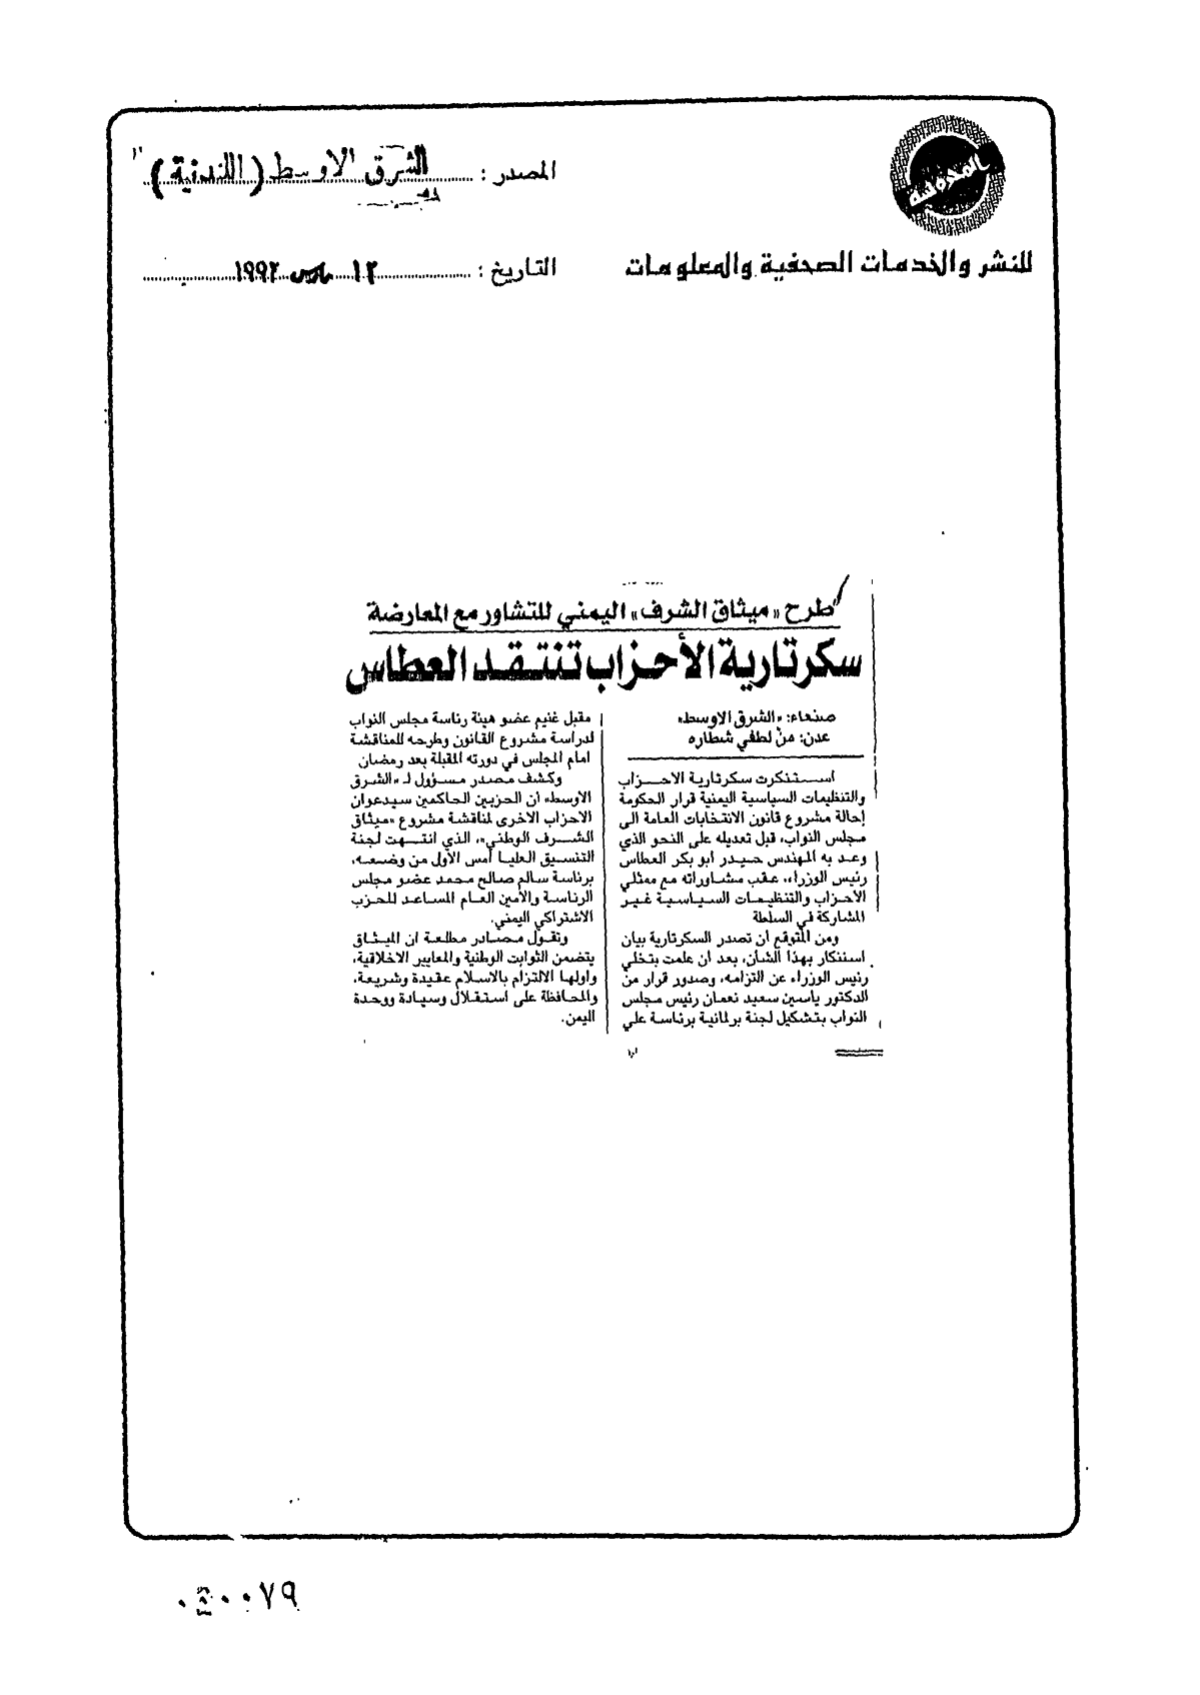 المصدر : الشرق الاوسط (اللندنية)
للنشر والخدمات الصحفية والمعلومات
التاريخ : ١٢ مارس ١٩٩٢
طرح «ميثاق الشرف» اليمني للتشاور مع المعارضة
سكرتارية الأحزاب تنتقد العطاس
صنعاء: «الشرق الاوسط»
عدن: من لطفي شطاره
استنكرت سكرتارية الاحزاب
والتنظيمات السياسية اليمنية قرار الحكومة
إحالة مشروع قانون الانتخابات العامة الى
مجلس النواب، قبل تعديله على النحو الذي
وعد به المهندس حيدر ابو بكر العطاس
رئيس الوزراء، عقب مشاوراته مع ممثلي
الأحزاب والتنظيمات السياسية غير
المشاركة في السلطة
ومن المتوقع ان تصدر السكرتارية بيان
استنكار بهذا الشأن، بعد ان علمت بتخلي
رئيس الوزراء عن التزامه، وصدور قرار من
الدكتور ياسين سعيد نعمان رئيس مجلس
النواب بتشكيل لجنة برلمانية برئاسة علي
مقبل غنيم عضو هيئة رئاسة مجلس النواب
لدراسة مشروع القانون وطرحه للمناقشة
امام المجلس في دورته المقبلة بعد رمضان
وكشف مصدر مسؤول لـ «الشرق
الاوسط» ان الحزبين الحاكمين سيدعوان
الاحزاب الاخرى لمناقشة مشروع «ميثاق
الشرف الوطني»، الذي انتهت لجنة
التنسيق العليا أمس الأول من وضعه،
برئاسة سالم صالح محمد عضو مجلس
الرئاسة والأمين العام المساعد للحزب
الاشتراكي اليمني.
وتقول مصادر مطلعة ان الميثاق
يتضمن الثوابت الوطنية والمعايير الاخلاقية،
واولها الالتزام بالاسلام عقيدة وشريعة،
والمحافظة على استقلال وسيادة ووحدة
اليمن.